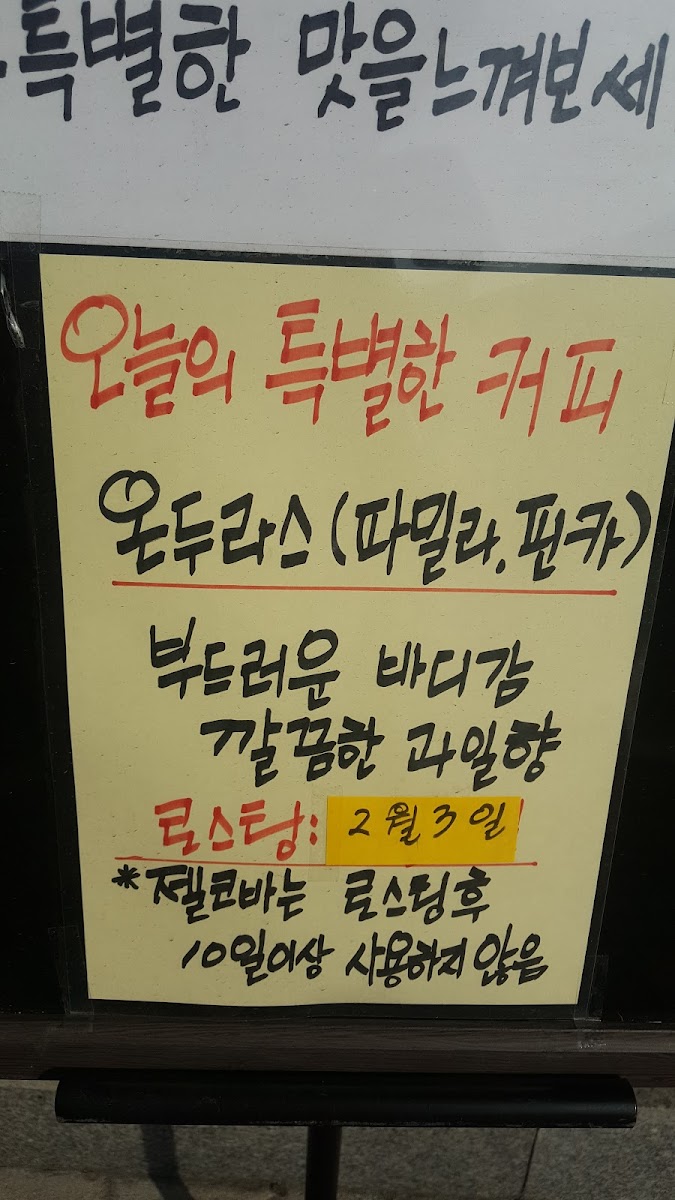 특별한 맛을 느껴보세
오늘의 특별한 커피
온두라스(파밀라.핀카)
부드러운 바디감
깔끔한 과일향
로스팅: 2월 3일
*젤코바는 로스팅후
10일이상 사용하지 않음